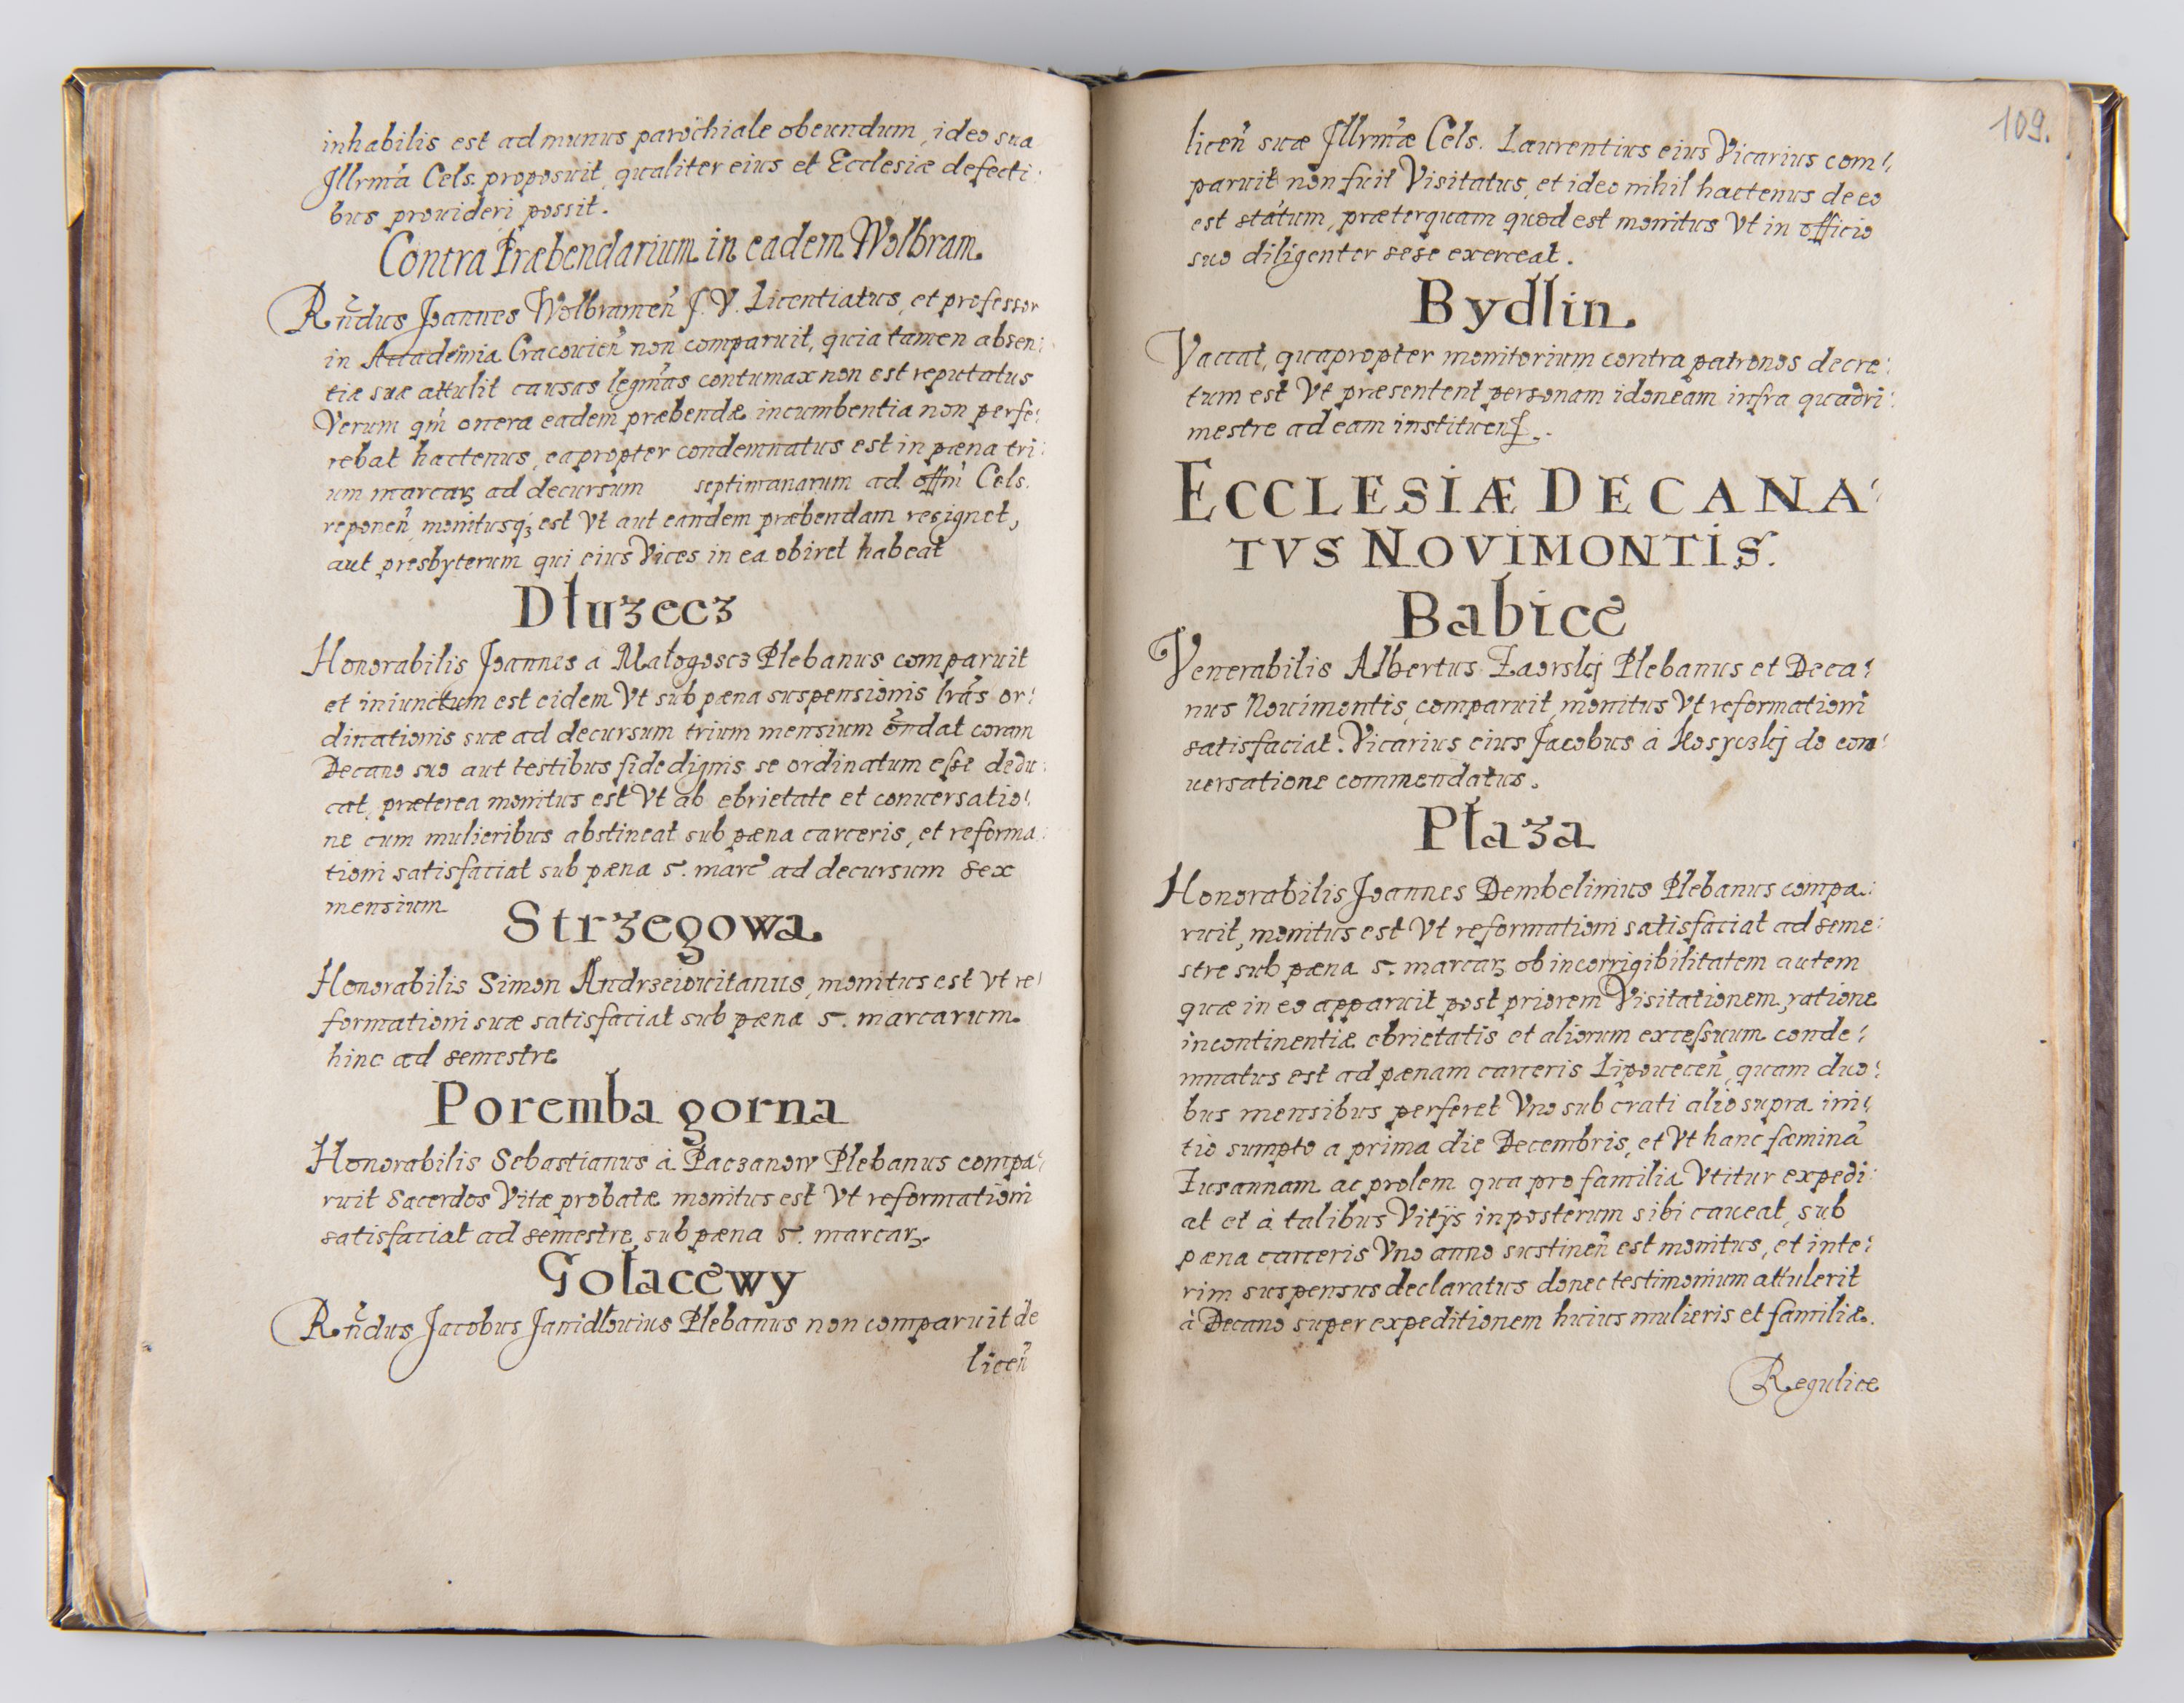 inhabilis est ad munus parochiale obeundum, ideo sua
Jllrmã Cels. proposuit, qualiter eius et Ecclesiæ defecti:
bus prouideri possit.
Contra Præbendarium in eadem Wolbram.
Rñdus Joannes Wolbramen̄ J. V. Licentiatus, et professor
in Accademia Cracouien̄ non comparuit, quia tamen absen:
tiæ suæ attulit causas legmãs contumax non est reputatus
Verum qm̃ onera eadem præbendæ incumbentia non perfe:
rebat hactenus, eapropter condemnatus est in pæna tri:
um marcaꝝ ad decursum septimanarum ad offm̃ Cels.
reponen̄, monitusqꝫ est Vt aut eandem præbendam resignet,
aut presbyterum qui eius Vices in ea obiret habeat
Dłuzecz
Honorabilis Joannes a Małogoscz Plebanus comparuit
et iniunctum est eidem Vt sub pæna suspensionis lrãs or:
dinationis suæ ad decursum trium mensium õndat coram
Decano suo aut testibus fide dignis se ordinatum esse dedu:
cat, præterea monitus est Vt ab ebrietate et conuersatio:
ne cum mulieribus abstineat sub pæna carceris, et reforma:
tioni satisfaciat sub pæna 5. marc̃ ad decursum sex
mensium
Strzegowa
Honorabilis Simon Andrzeiouitanus, monitus est vt re:
formationi suæ satisfaciat sub pæna 5. marcarum
hinc ad semestre
Poremba gorna
Honorabilis Sebastianus à Paczanow Plebanus compa:
ruit Sacerdos Vitæ probatæ monitus est Vt reformationi
satisfaciat ad semestre, sub pæna 5. marcaꝝ.
Gołacewy
Rñdus Jacobus Janidłouius Plebanus non comparuit de
licen̄
109.
licen̄ suæ Jllrmæ Cels. Laurentius eius Vicarius com:
paruit non fuit Visitatus, et ideo nihil hactenus de eo
est statum, præterquam quod est monitus Vt in officio
suo diligenter sese exerceat.
Bydlin.
Vaccat, quapropter monitorium contra patronos decre:
tum est Vt præsentent personam idoneam infra quadri:
mestre ad eam instituen̄
ECCLESIÆ DECANA:
TVS NOVIMONTIS.
Babice
Venerabilis Albertus Zaorskj Plebanus et Deca:
nus Nouimontis, comparuit, monitus Vt reformationi
satisfaciat. Vicarius eius Jacobus à Kosyczkj de con:
uersatione commendatus.
Płaza
Honorabilis Joannes Dembelinius Plebanus compa:
ruit, monitus est Vt reformationi satisfaciat ad seme:
stre sub pæna 5. marcaꝝ ob incorrigibilitatem autem
quæ in eo apparuit post priorem Visitationem, ratione
incontinentiæ ebrietatis et aliorum excessuum conde:
mnatus est ad pænam carceris Lipouecen̄, quam duo:
bus mensibus perferet Vno sub crati alio supra ini:
tio sumpto a prima die Decembris, et Vt hanc fæminã
Zusannam ac prolem qua pro familia Vtitur expedi:
at et à talibus Vitijs inposterum sibi caueat, sub
pæna carceris Vno anno sustinen̄ est monitus, et inte:
rim suspensus declaratus donec testimonium attulerit
à Decano super expeditionem huius mulieris et familiæ.
Regulice